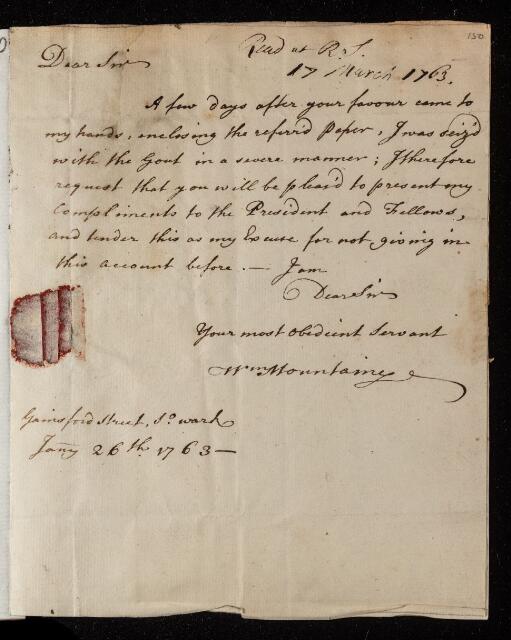 150
Read at R. S.
Dear Sir
17 March 1763.
A few days after your favour came to
my hands, inclosing the referr'd Paper, I was seiz'd
with the Gout in a severe manner; I therefore
request that you will be pleas'd to present my
Compliments to the President and Fellows,
and tender this as my Excuse for not giving in
this account before. — I am
Dear Sir
Your most Obedient Servant
Wm Mountaine
Gainsford Street, So. wark
Jany 26th 1763 —